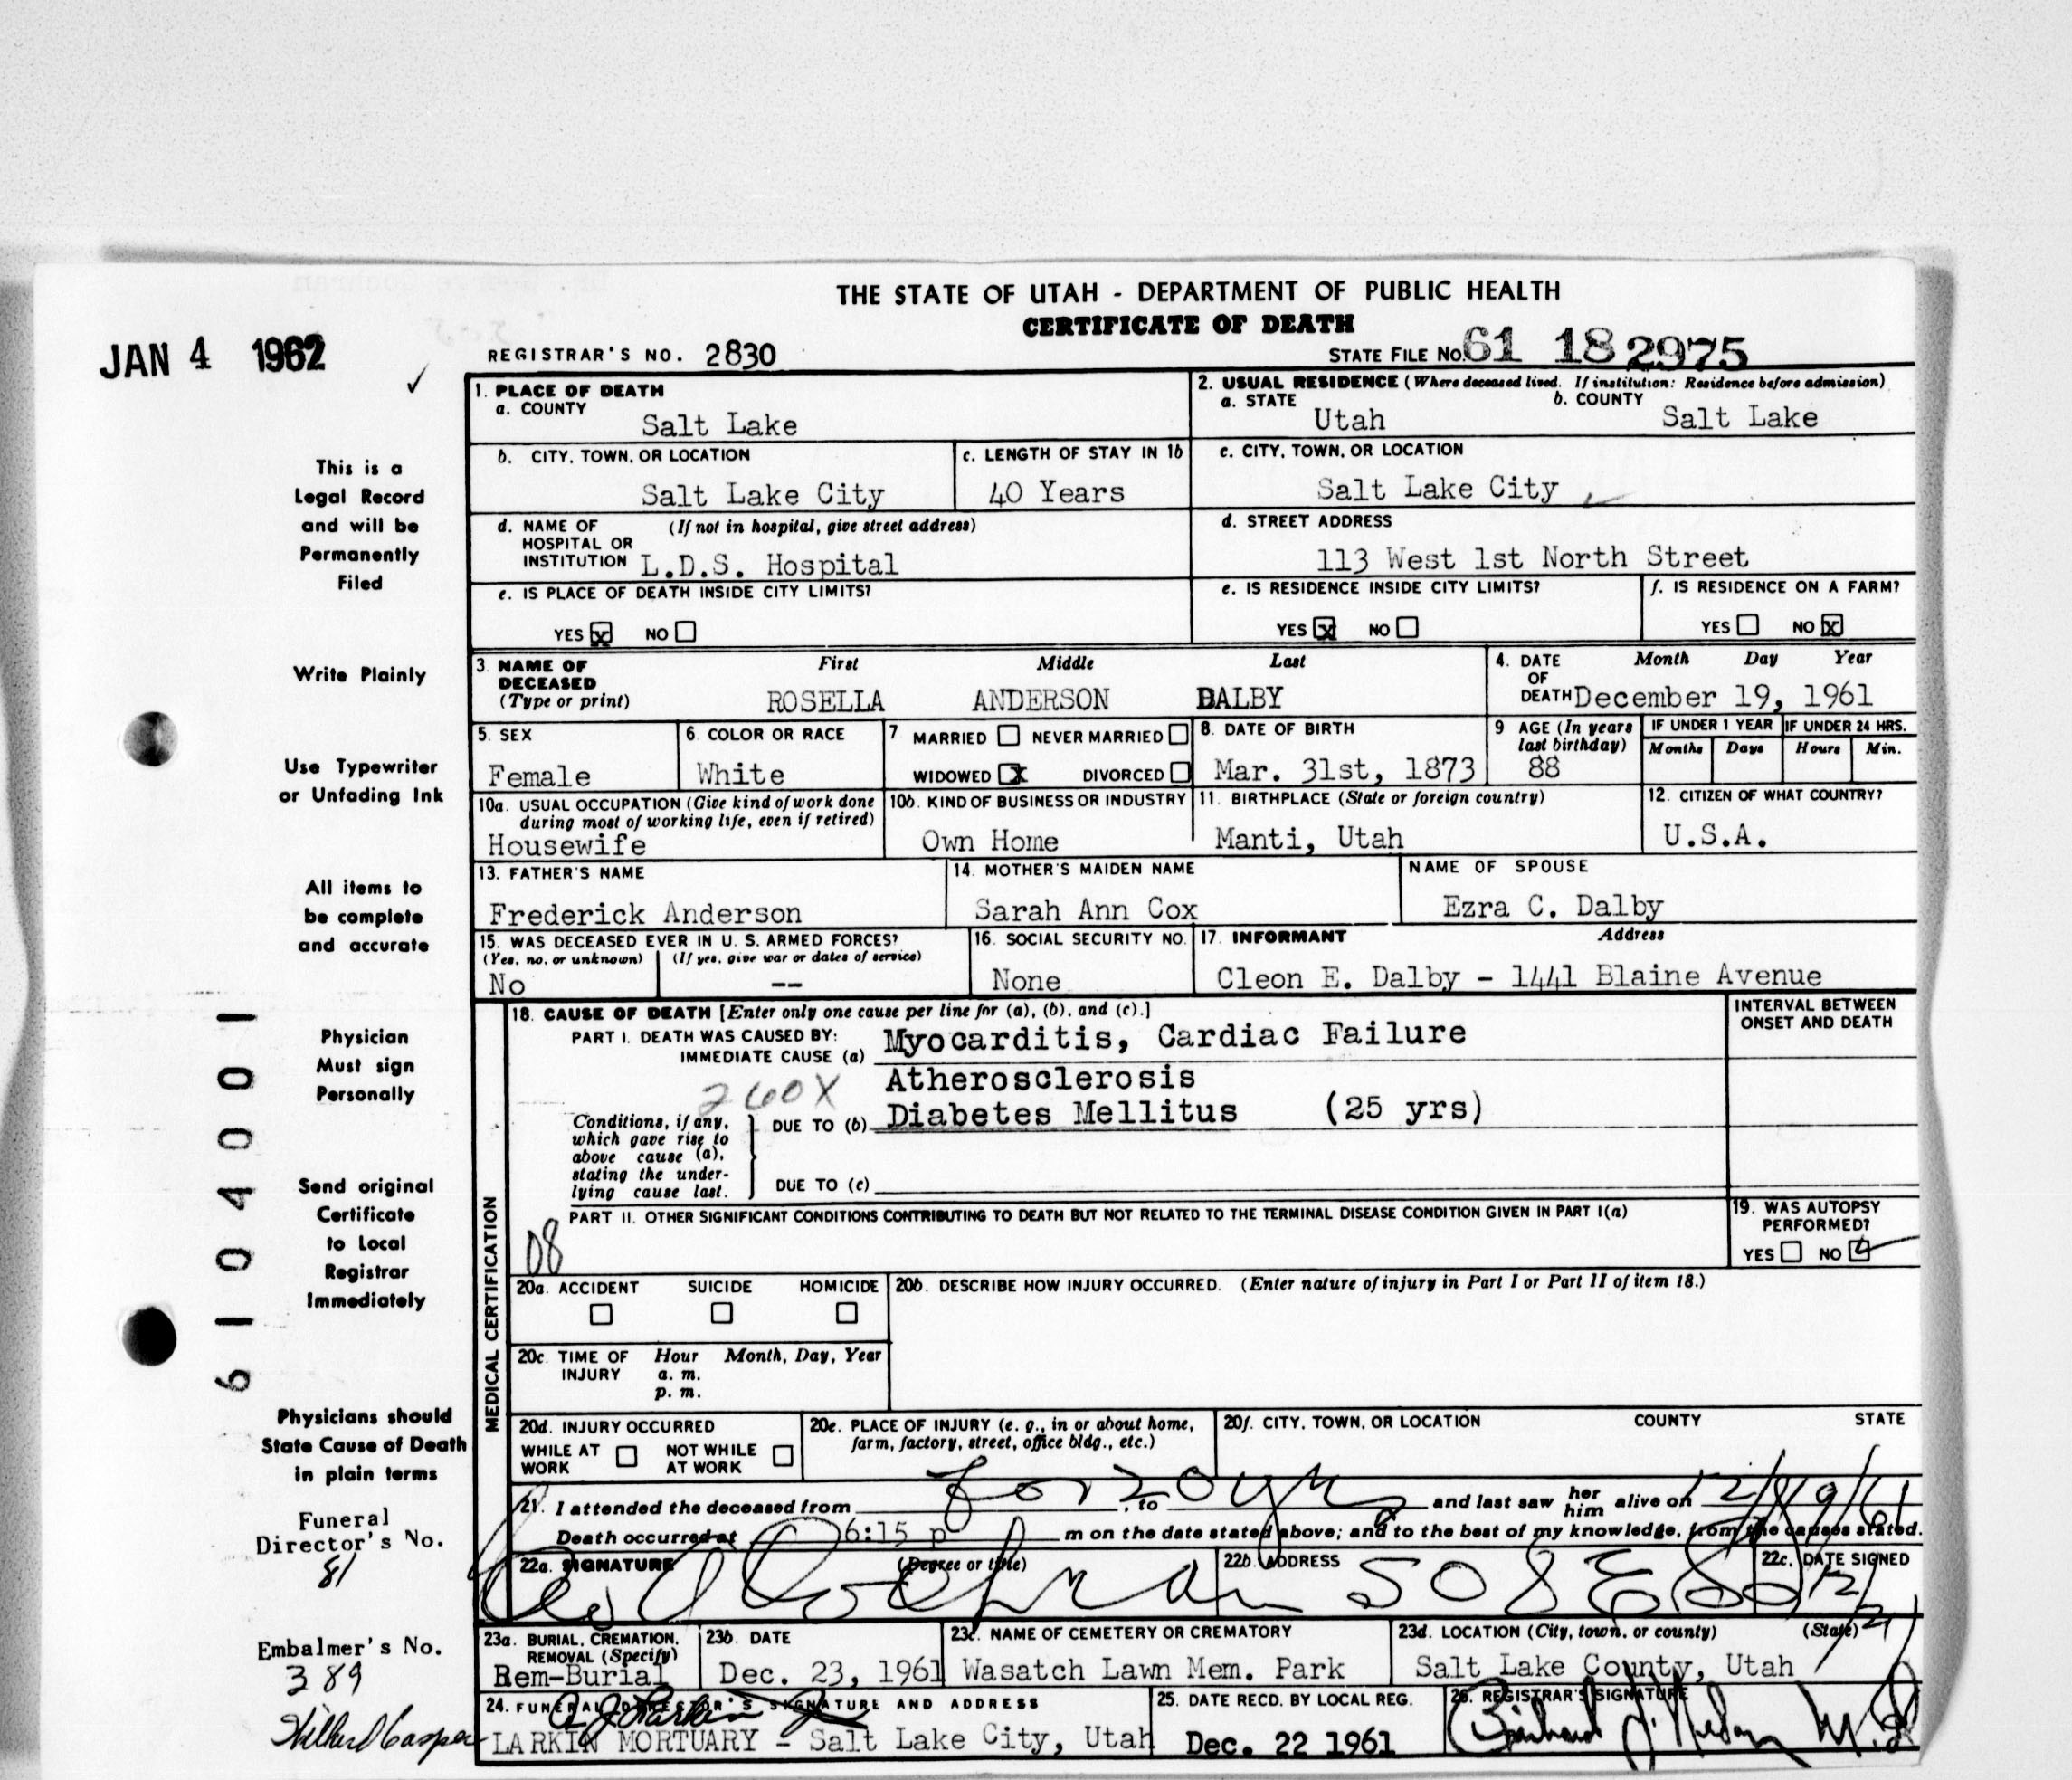 THE STATE OF UTAH - DEPARTMENT OF PUBLIC HEALTH
CERTIFICATE OF DEATH
JAN 4 1962
REGISTRAR'S NO. 2830
STATE FILE No. 61 18 2975
✓
This is a
Legal Record
and will be
Permanently
Filed
Write Plainly
Use Typewriter
or Unfading Ink
All items to
be complete
and accurate
Physician
Must sign
Personally
Send original
Certificate
to Local
Registrar
Immediately
Physicians should
State Cause of Death
in plain terms
Funeral
Director's No.
81
Embalmer's No.
389
61 04001
1. PLACE OF DEATH
a. COUNTY
Salt Lake
2. USUAL RESIDENCE (Where deceased lived. If institution: Residence before admission)
a. STATE
Utah
b. COUNTY
Salt Lake
b. CITY, TOWN, OR LOCATION
Salt Lake City
c. LENGTH OF STAY IN 1b
40 Years
c. CITY, TOWN, OR LOCATION
Salt Lake City
d. NAME OF (If not in hospital, give street address)
HOSPITAL OR
INSTITUTION L.D.S. Hospital
d. STREET ADDRESS
113 West 1st North Street
e. IS PLACE OF DEATH INSIDE CITY LIMITS?
YES x NO
e. IS RESIDENCE INSIDE CITY LIMITS?
YES x NO
f. IS RESIDENCE ON A FARM?
YES NO x
3. NAME OF DECEASED (Type or print)
First Middle Last
ROSELLA ANDERSON DALBY
4. DATE OF DEATH
Month Day Year
December 19, 1961
5. SEX
Female
6. COLOR OR RACE
White
7 MARRIED NEVER MARRIED
WIDOWED x DIVORCED
8. DATE OF BIRTH
Mar. 31st, 1873
9 AGE (In years last birthday)
88
IF UNDER 1 YEAR
Months Days
IF UNDER 24 HRS.
Hours Min.
10a. USUAL OCCUPATION (Give kind of work done
during most of working life, even if retired)
Housewife
10b. KIND OF BUSINESS OR INDUSTRY
Own Home
11. BIRTHPLACE (State or foreign country)
Manti, Utah
12. CITIZEN OF WHAT COUNTRY?
U.S.A.
13. FATHER'S NAME
Frederick Anderson
14. MOTHER'S MAIDEN NAME
Sarah Ann Cox
NAME OF SPOUSE
Ezra C. Dalby
15. WAS DECEASED EVER IN U. S. ARMED FORCES?
(Yes, no, or unknown) (If yes, give war or dates of service)
No --
16. SOCIAL SECURITY NO.
None
17. INFORMANT Address
Cleon E. Dalby - 1441 Blaine Avenue
MEDICAL CERTIFICATION
18. CAUSE OF DEATH [Enter only one cause per line for (a), (b), and (c).]
INTERVAL BETWEEN
ONSET AND DEATH
PART I. DEATH WAS CAUSED BY:
IMMEDIATE CAUSE (a) Myocarditis, Cardiac Failure
Atherosclerosis
260X
Conditions, if any,
which gave rise to
above cause (a),
stating the under-
lying cause last.
DUE TO (b) Diabetes Mellitus (25 yrs)
DUE TO (c)
PART II. OTHER SIGNIFICANT CONDITIONS CONTRIBUTING TO DEATH BUT NOT RELATED TO THE TERMINAL DISEASE CONDITION GIVEN IN PART I(a)
08
19. WAS AUTOPSY
PERFORMED?
YES NO ✓
20a. ACCIDENT SUICIDE HOMICIDE
20b. DESCRIBE HOW INJURY OCCURRED. (Enter nature of injury in Part I or Part II of item 18.)
20c. TIME OF INJURY
Hour Month, Day, Year
a. m.
p. m.
20d. INJURY OCCURRED
WHILE AT WORK NOT WHILE AT WORK
20e. PLACE OF INJURY (e. g., in or about home,
farm, factory, street, office bldg., etc.)
20f. CITY, TOWN, OR LOCATION COUNTY STATE
21. I attended the deceased from for 20 yrs, to and last saw her him alive on 12/19/61
Death occurred at 6:15 p m on the date stated above; and to the best of my knowledge, from the causes stated.
22a. SIGNATURE (Degree or title)
Cochran
22b. ADDRESS
508 E
22c. DATE SIGNED
12/21
23a. BURIAL, CREMATION,
REMOVAL (Specify)
Rem-Burial
23b. DATE
Dec. 23, 1961
23c. NAME OF CEMETERY OR CREMATORY
Wasatch Lawn Mem. Park
23d. LOCATION (City, town, or county) (State)
Salt Lake County, Utah
24. FUNERAL DIRECTOR'S SIGNATURE AND ADDRESS
LARKIN MORTUARY - Salt Lake City, Utah
25. DATE RECD. BY LOCAL REG.
Dec. 22 1961
26. REGISTRAR'S SIGNATURE